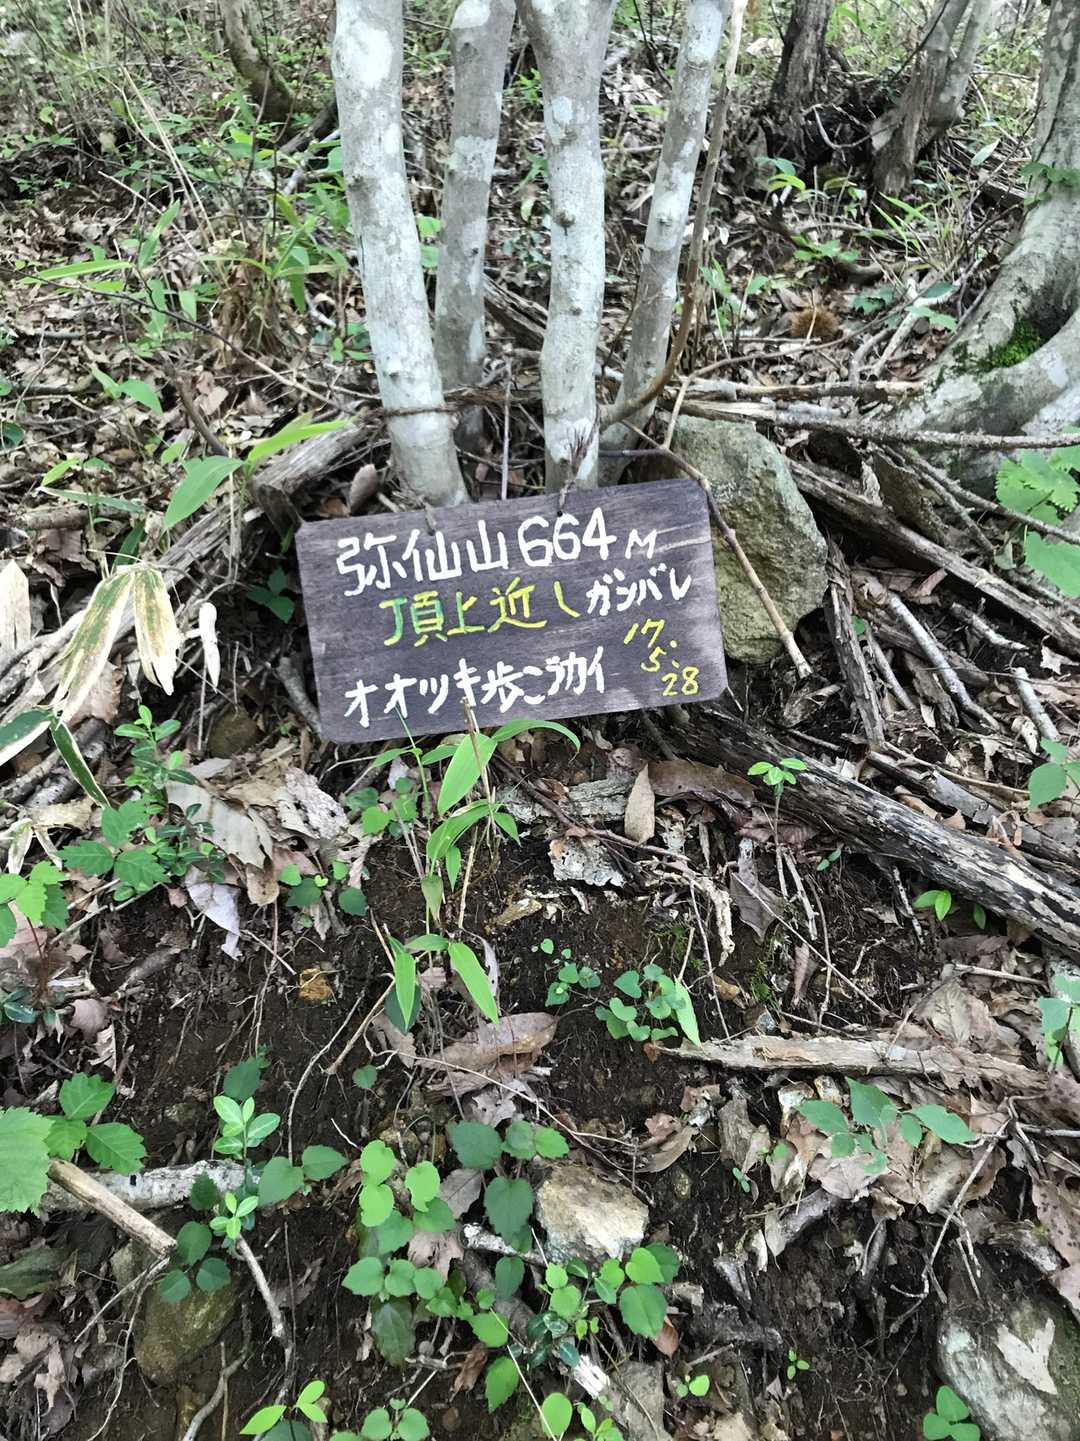 弥仙山664M
頂上近しガンバレ
オオツキ歩こうカイ
17.
5.
28